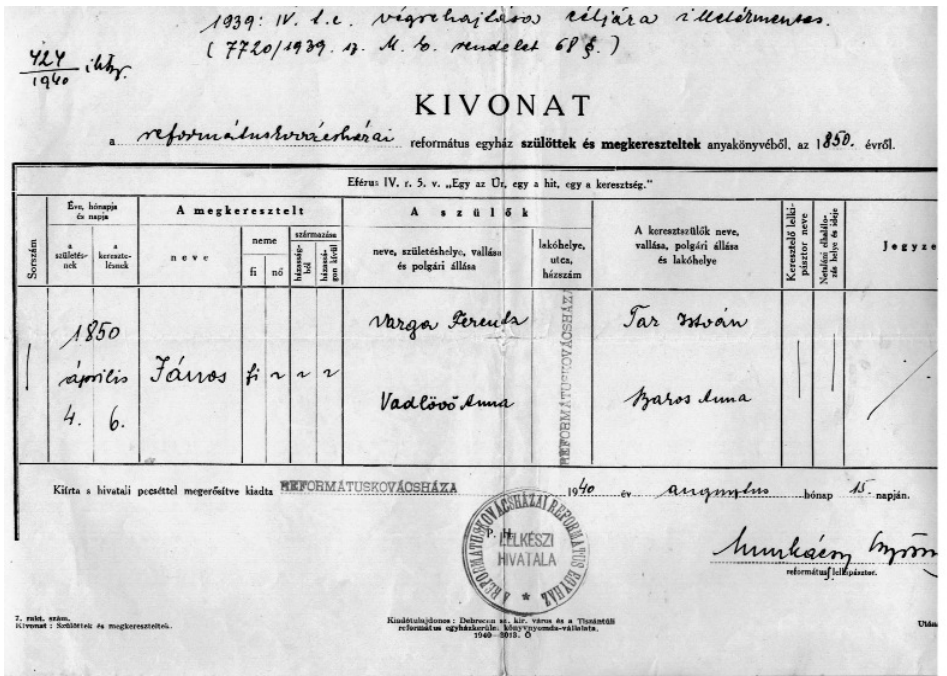 1939: IV. t.c. végrehajtása céljára illetékmentes.
(7720/1939. sz. M. E. rendelet 68 §.)
424
1940
KIVONAT
a reformátuskovácsházai református egyház szülöttek és megkereszteltek anyakönyvéből, az 1850. évről.
Eférus IV. r. 5. v. „Egy az Úr, egy a hit, egy a keresztség.”
Sorszám
Éve, hónapja és napja
a születés-nek
a keresztelésnek
A megkeresztelt
neve
neme
fi
nő
származása
házasság-ból
házassá-gon kívül
A szülők
neve, születéshelye, vallása és polgári állása
lakóhelye, utca, házszám
A keresztszülők neve, vallása, polgári állása és lakóhelye
Keresztelő lelki-pásztor neve
Netaláni elhalálo-zás helye és ideje
Jegyze
1850
április
4. 6.
János
fi
Varga Ferencz
Vadlövő Anna
REFORMÁTUSKOVÁCSHÁZA
Tar István
Baros Anna
Kiírta s hivatali pecséttel megerősítve kiadta REFORMÁTUSKOVÁCSHÁZA 1940 év augusztus hónap 15. napján.
P. H.
A REFORMÁTUSKOVÁCSHÁZAI REFORMÁTUS EGYHÁZ
LELKÉSZI
HIVATALA
Munkácsy
református lelkipásztor.
7. rakt. szám.
Kivonat: Szülöttek és megkereszteltek.
Kiadótulajdonos: Debrecen sz. kir. város és a Tiszántúli
református egyházkerület könyvnyomda-vállalata.
1940—3013. Ö
Után